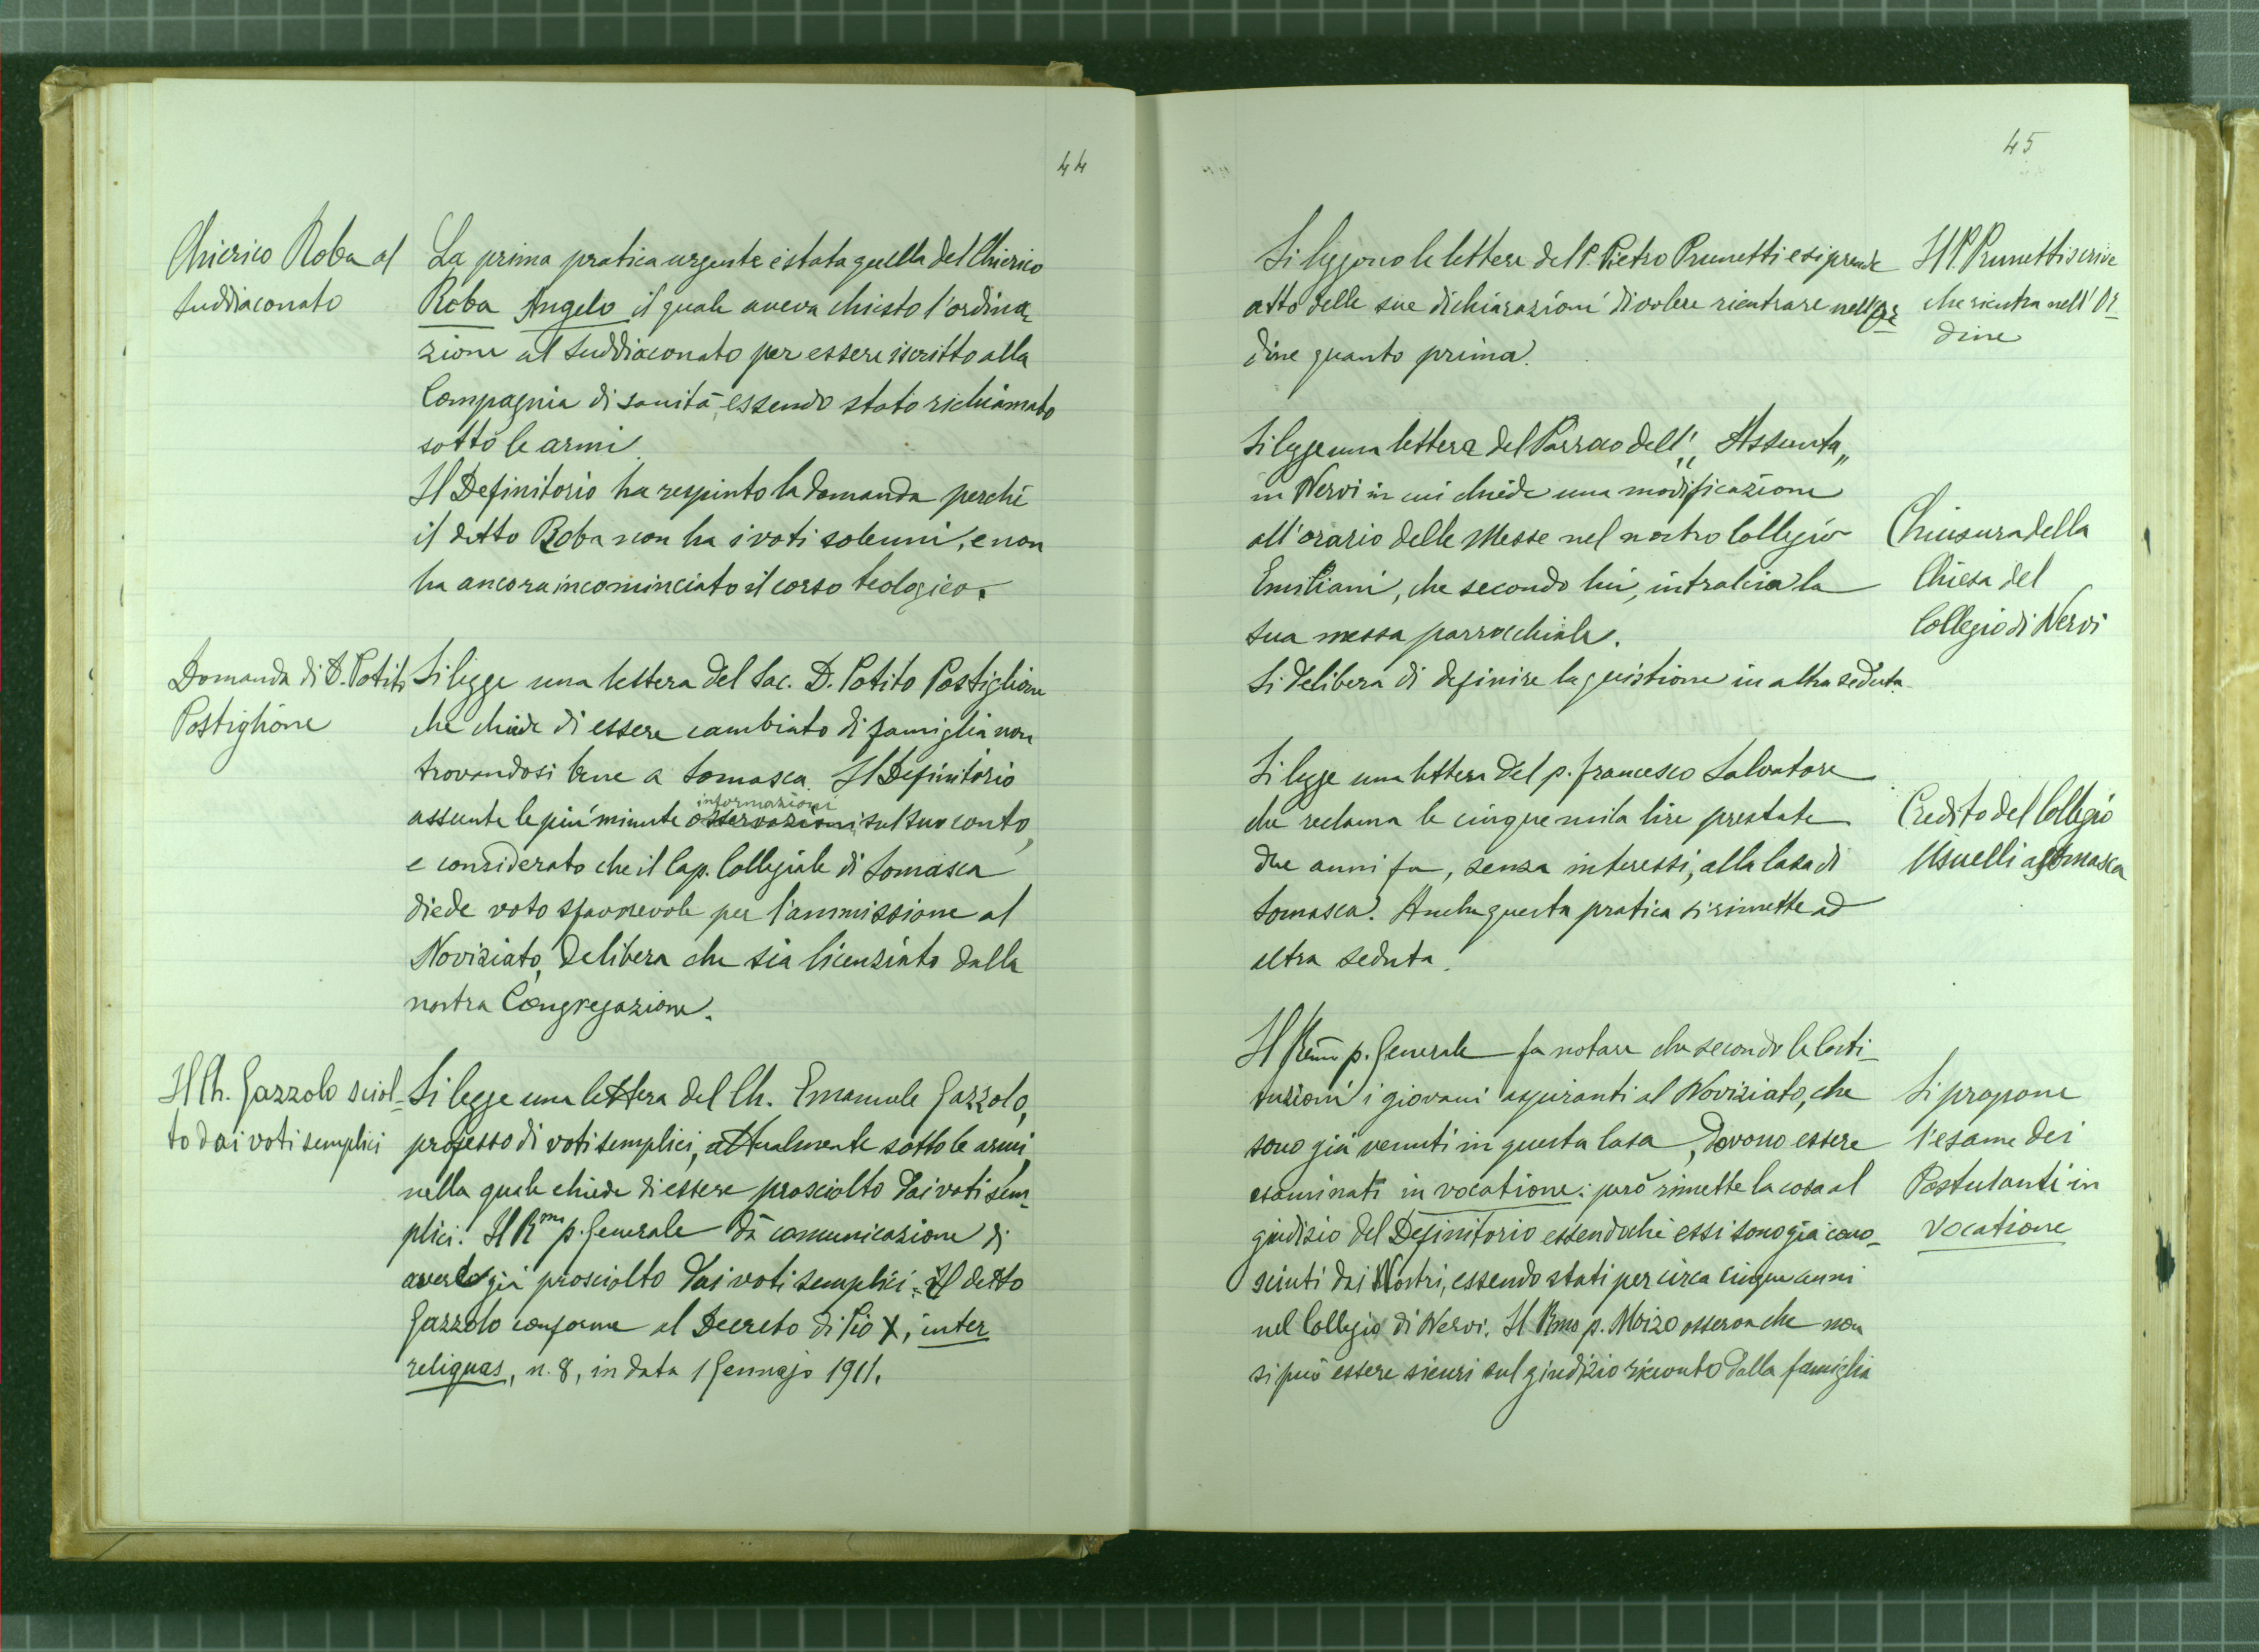 44
Chierico Roba al
Suddiaconato
La prima pratica urgente è stata quella del Chierico
Roba Angelo il quale aveva chiesto l'ordina-
zione al Suddiaconato per essere iscritto alla
Compagnia di sanità, essendo stato richiamato
sotto le armi.
Il Definitorio ha respinto la domanda perchè
il detto Roba non ha i voti solenni, e non
ha ancora incominciato il corso teologico.
Domanda di D. Potito
Postiglione
Si legge una lettera del Sac. D. Potito Postiglione
che chiede di essere cambiato di famiglia non
trovandosi bene a Somasca. Il Definitorio
informazioni
assunte le più minute osservazioni sul suo conto,
e considerato che il Cap. Collegiale di Somasca
diede voto sfavorevole per l'ammissione al
Noviziato, delibera che sia licenziato dalla
nostra Congregazione.
Il Ch. Gazzolo sciol-
to dai voti semplici
Si legge una lettera del Ch. Emanuele Gazzolo,
professo di voti semplici, attualmente sotto le armi,
nella quale chiede di essere prosciolto dai voti sem-
plici. Il Rmo p. Generale dà comunicazione di
averlo già prosciolto dai voti semplici il detto
Gazzolo conforme al Decreto di Pio X, inter
reliquas, n. 8, in data 1 Gennajo 1911.
45
Si leggono le lettere del P. Pietro Prunetti e si prende
atto delle sue dichiarazioni di volere rientrare nell'Or-
dine quanto prima.
Il P. Prunetti scrive
che rientra nell'Or-
dine
Si legge una lettera del Parroco dell',, Assunta,,
in Nervi in cui chiede una modificazione
all'orario delle Messe nel nostro Collegio
Emiliani, che secondo lui, intralcia la
sua messa parrocchiale.
Si delibera di definire la quistione in altra seduta.
Chiusura della
Chiesa del
Collegio di Nervi
Si legge una lettera del p. Francesco Salvatore
che reclama le cinque mila lire prestate
due anni fa, senza interessi, alla Casa di
Somasca. Anche questa pratica si rimette ad
altra seduta.
Credito del Collegio
Usuelli a Somasca
Il Remo p. Generale fa notare che secondo le Costi-
tuzioni i giovani aspiranti al Noviziato, che
sono già venuti in questa Casa, devono essere
esaminati in vocatione: però rimette la cosa al
giudizio del Definitorio essendochè essi sono già cono-
sciuti dai Nostri, essendo stati per circa cinque anni
nel Collegio di Nervi. Il Rmo p. Moizo osserva che non
si può essere sicuri sul giudizio ricevuto dalla famiglia
Si propone
l'esame dei
Postulanti in
vocatione